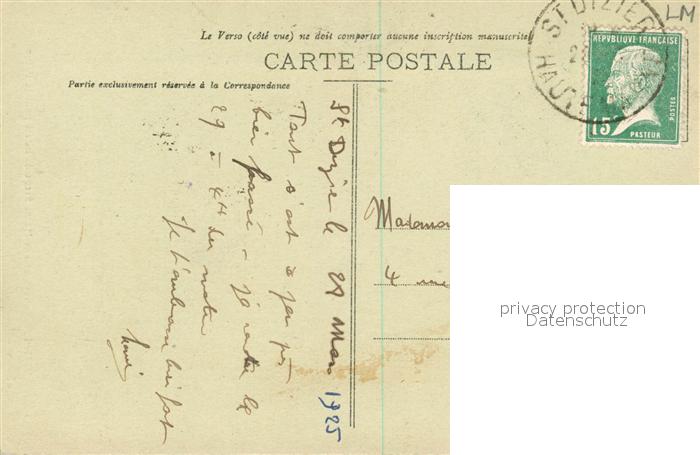 Le Verso (côté vue) ne doit comporter aucune inscription manuscrite
CARTE POSTALE
Partie exclusivement réservée à la Correspondance
LM
ST DIZIER
REPUBLIQUE FRANÇAISE
15
POSTES
PASTEUR
St Dizier le 28 Mars 1925
Tout s'est à peu près
bien passé - je rentre le
29 à 4H du matin
Je t'embrasse bien fort
4 rue
privacy protection
Datenschutz